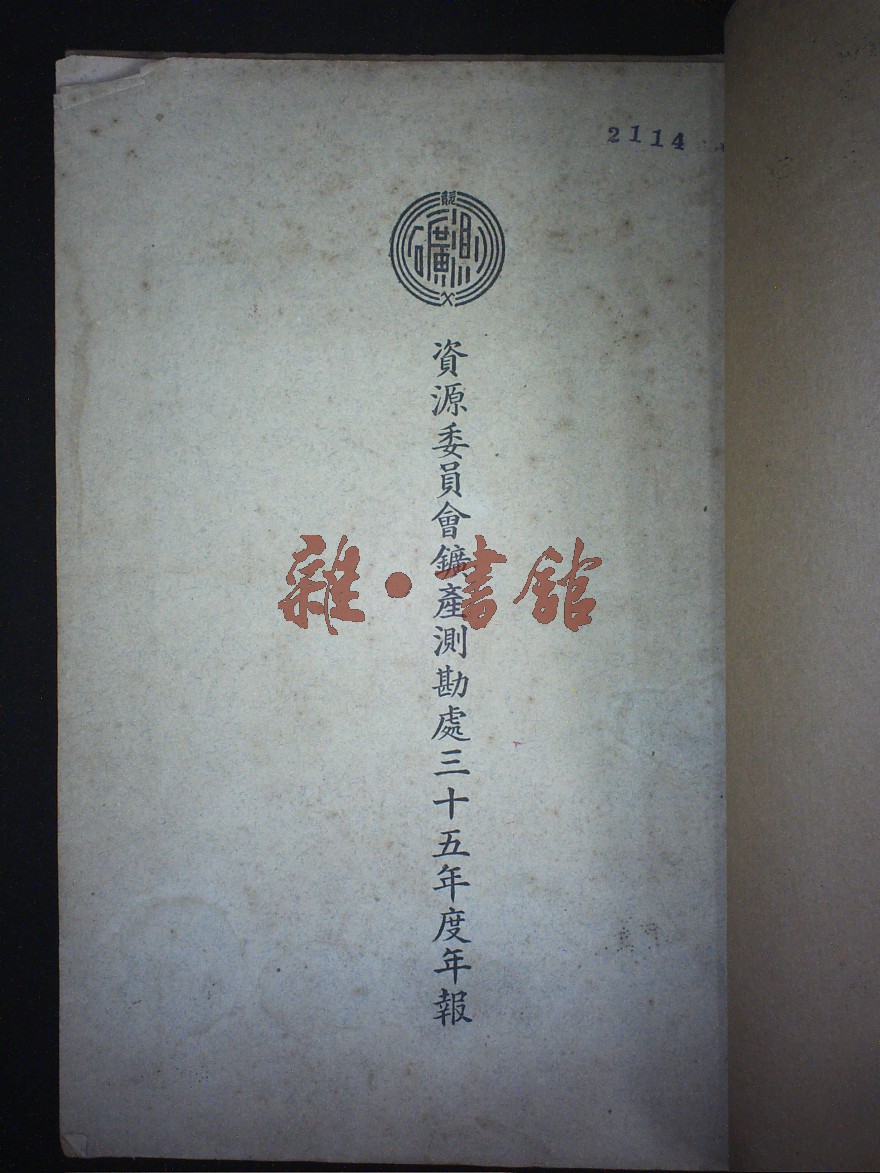 2114
礦測
資源委員會鑛產測勘處三十五年度年報
雜·書館